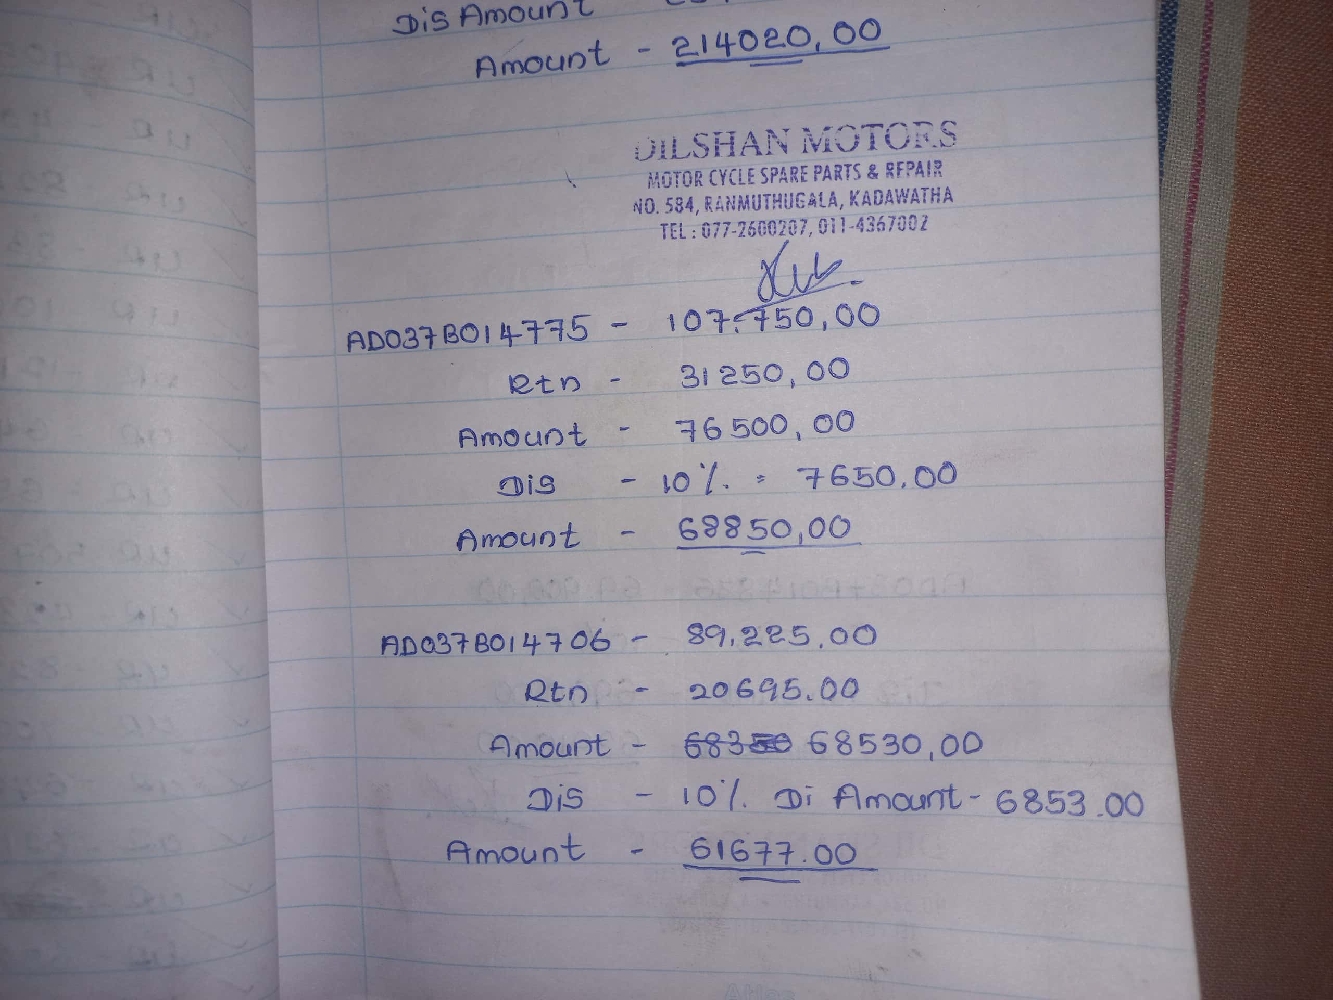 Dis Amount
Amount - 214020,00
DILSHAN MOTORS
MOTOR CYCLE SPARE PARTS & REPAIR
NO. 584, RANMUTHUGALA, KADAWATHA
TEL : 077-2600207, 011-4367002
AD037B014775 - 107,750,00
Rtn - 31250,00
Amount - 76500,00
Dis - 10% = 7650,00
Amount - 68850,00
AD037B014706 - 89,225.00
Rtn - 20695.00
Amount - 68350 68530,00
Dis - 10% Di Amount - 6853.00
Amount - 61677.00